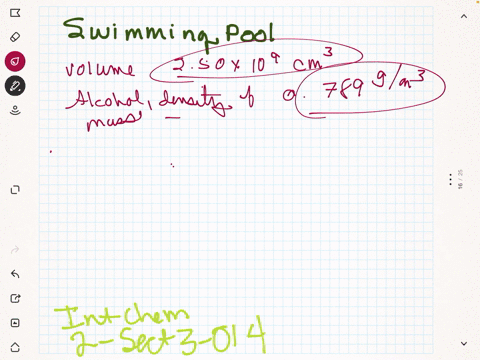 Swimming Pool
volume 2.50 x 10⁹ cm³
Alcohol, density of 0.789 g/cm³
mass
Int-Chem
2-Sect3-014
16 / 20